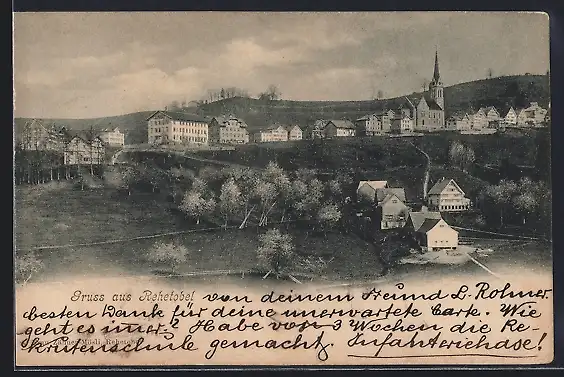 Gruss aus Rehetobel von deinem Freund L. Rohner.
besten Dank für deine unerwartete Carte. Wie
geht es imer? Habe vor 3 Wochen die Re-
krutenschule gemacht. Infanteriehase!
Mösli, Rehetobel